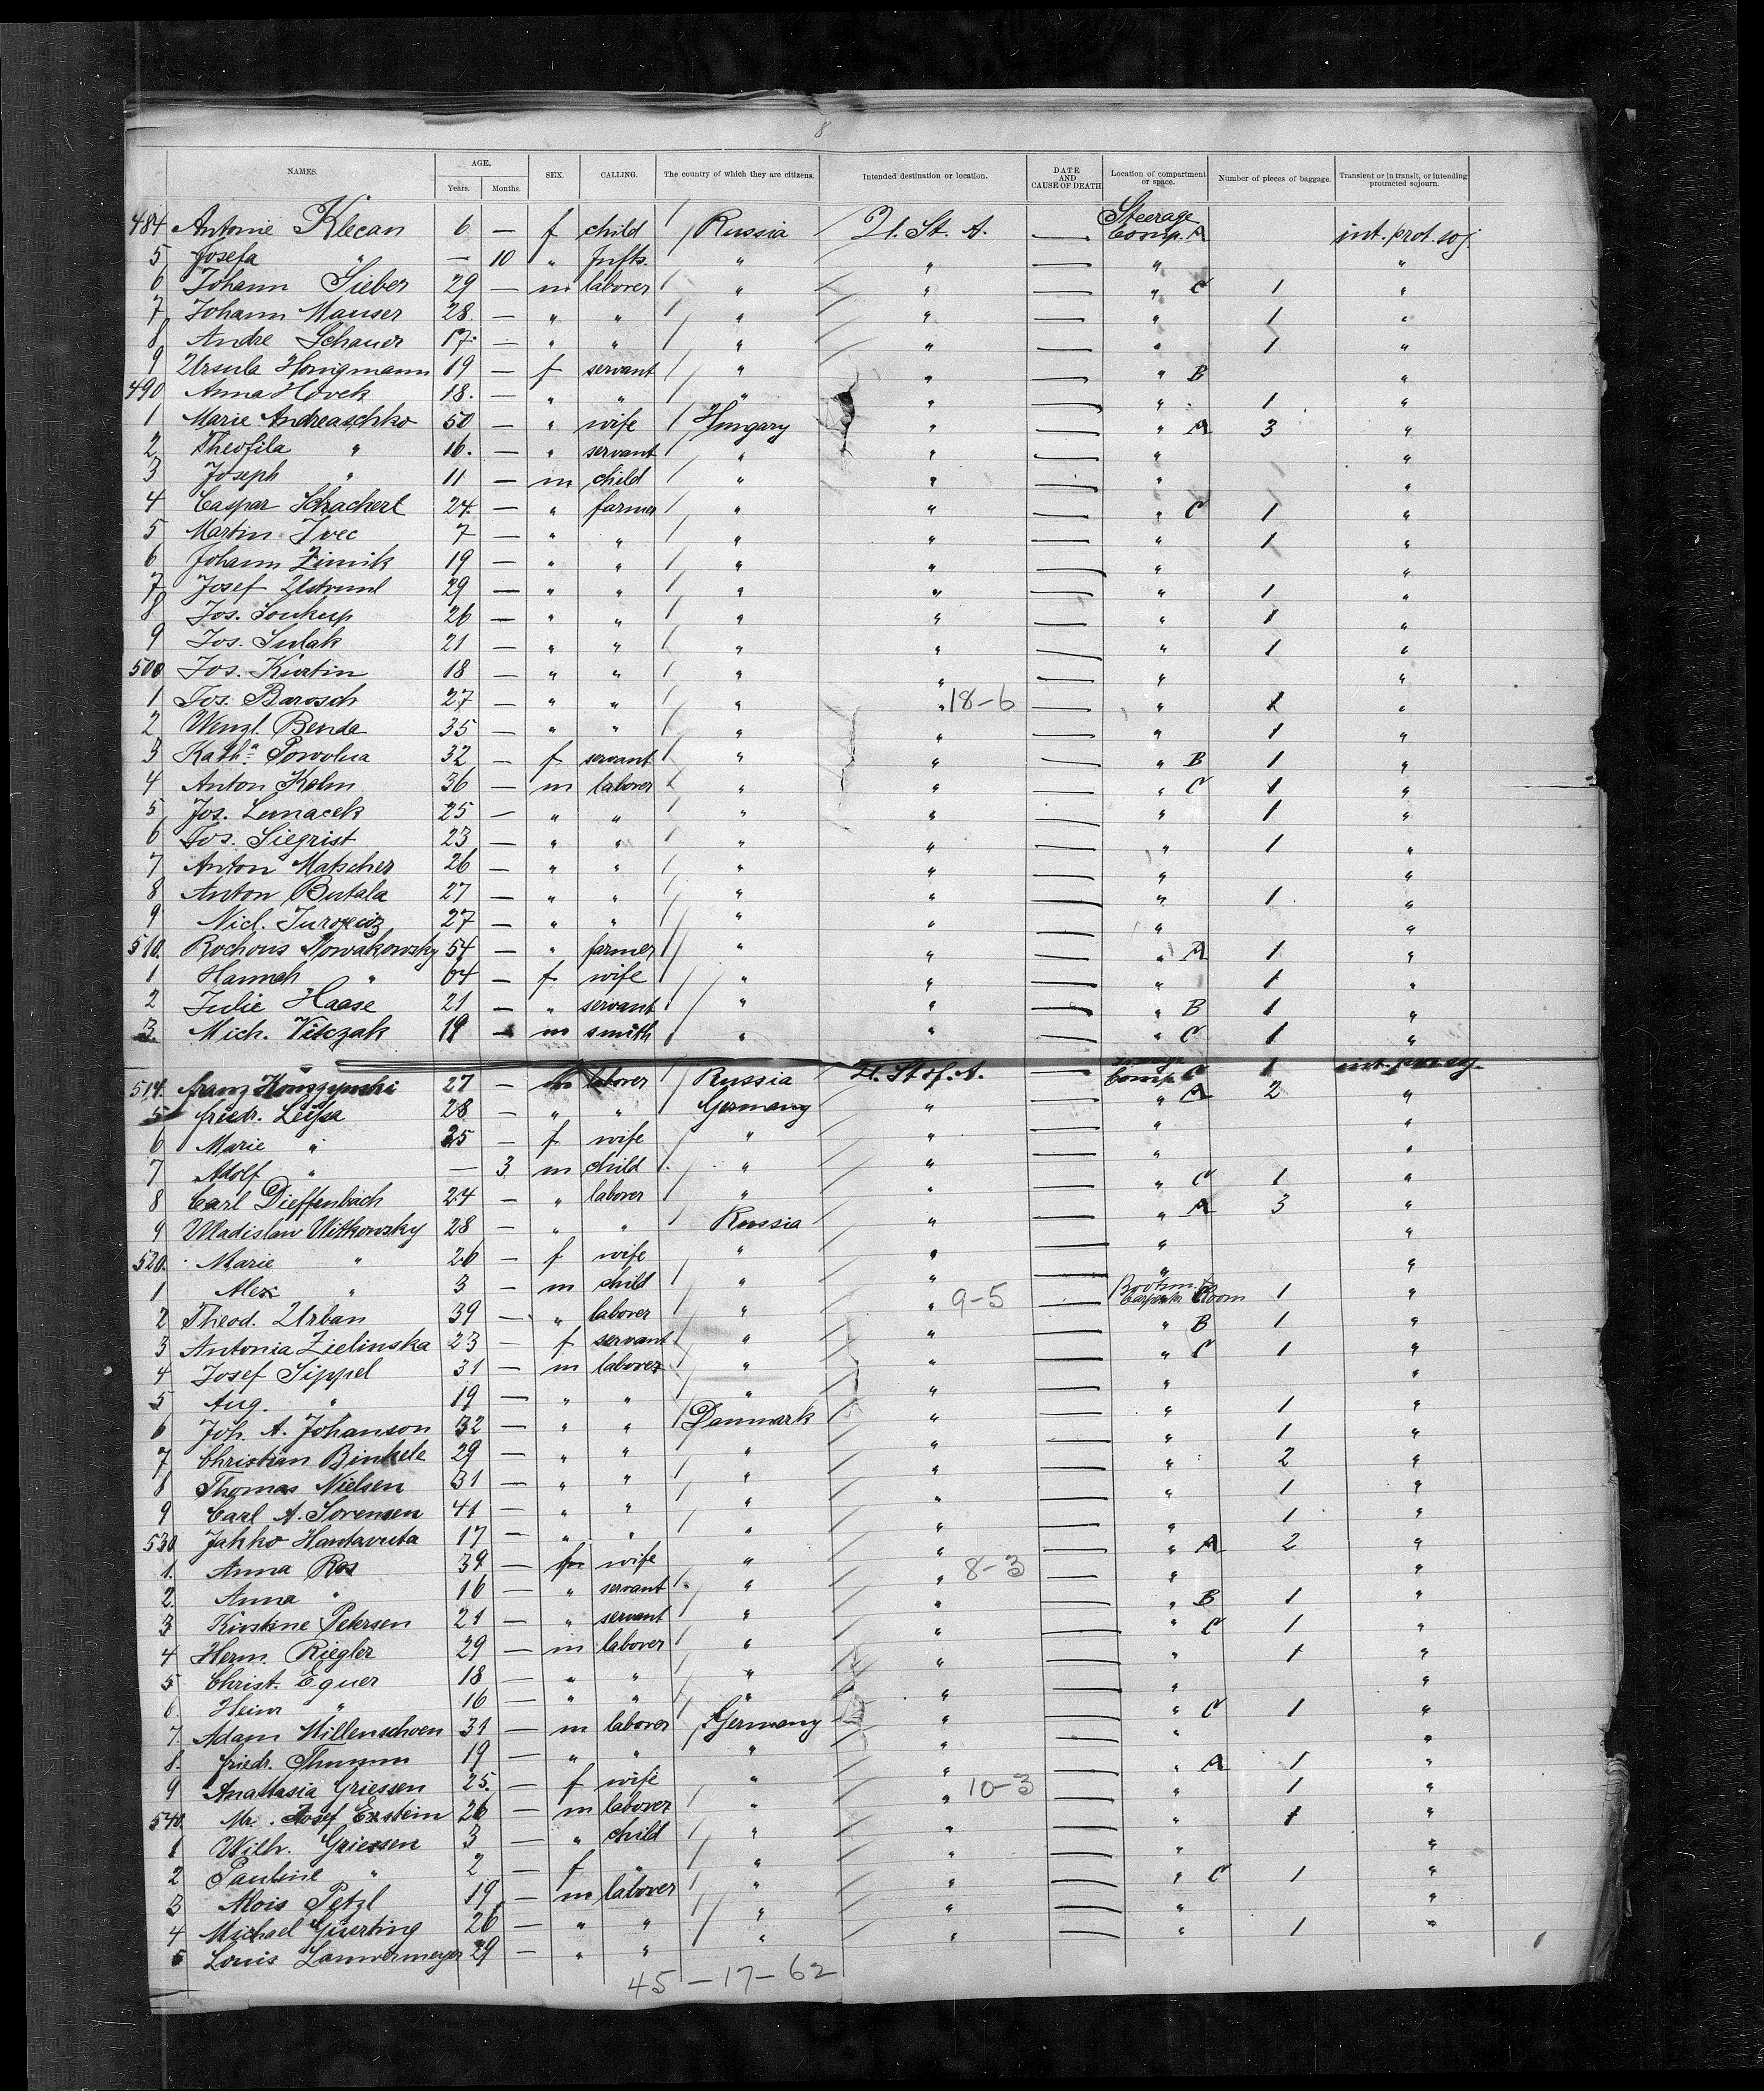 8
NAMES. AGE. Years. Months. SEX. CALLING. The country of which they are citizens. Intended destination or location. DATE AND CAUSE OF DEATH Location of compartment or space. Number of pieces of baggage. Transient or in transit, or intending protracted sojourn.
484 Antonie Klecan 6 — f child / Russia U. St. A. — Steerage Comp. A int. prot. soj.
5 Josefa " — 10 " Infts. " " — " "
6 Johann Sieber 29 — m laborer / " / " — " C 1 "
7 Johann Mauser 28. — " " / " / " — " 1 "
8 Andre Schauer 17. — " " / " / " — " 1 "
9 Ursula Honigmann 19 — f servant / " / " — " B "
490 Anna Hovek 18. — " " / " " — " 1 "
1 Marie Andreaschko 50 — " wife / Hungary " — " A 3 "
2 Theofila " 16. — " servant " " — " "
3 Joseph " 11 — m child / " " — " "
4 Caspar Schackerl 24 — " farmer / " / " — " C 1 "
5 Martin Ivec 7 — " " / " / " — " 1 "
6 Johann Zimik 19 — " " / " / " — " "
7 Josef 29 — " " / " / " — " 1 "
8 Jos. Soukup 26 — " " / " / " — " 1 "
9 Jos. Sulak 21 — " " / " / " — " 1 "
500 Jos. Kurtin 18 — " " / " / " — " "
1 Jos. Barosch 27 — " " / " / " 18-6 — " 1 "
2 Wenzl. Benda 35 — " " / " / " — " 1 "
3 Kath. Powolna 32 — f servant / " " — " B 1 "
4 Anton Kelm 36 — m laborer / " " — " C 1 "
5 Jos. Lunacek 25 — " " / " " — " 1 "
6 Jos. Siegrist 23 — " " / " / " — " 1 "
7 Anton Matscher 26 — " " / " / " — " "
8 Anton Butala 27 — " " / " / " — " 1 "
9 Nicl. 27 — " " / " / " — " "
510. Rochous Nowakowsky 54 — " farmer / " / " — " A 1 "
1 Hannah " 64 — f wife / " / " — " 1 "
2 Julie Haase 21 — " servant / " / " — " B 1 "
3. Mich. Vitczak 19 m smith / " / " — " C 1 "
514. Franz 27 — m laborer / Russia / U. St. of. A. — Comp. C 1
5 Friedr. 28 — " " Germany / " — " A 2 "
6 Marie " 25 — f wife / " / " — " "
7 Adolf " — 3 m child / " / " — " "
8 Carl Dieffenbach 24 — " laborer / " / " — " C 1 "
9 Wladislaw Witkowsky 28 — " " / Russia / " — " A 3 "
520. Marie " 26 — f wife " / " — " "
1 Alex " 3 — m child / " / " — " "
2 Theod. Urban 39 — " laborer / " / " 9-5 — Room 1 "
3 Antonia Zielinska 23 — f servant / " / " — " B 1 "
4 Josef Sippel 31 — m laborer / " / " — " C 1 "
5 Aug. " 19 — " " / " / " — " "
6 Joh. A. Johanson 32 — " " / Danmark / " — " 1 "
7 Christian Binkele 29 — " " / " / " — " 1 "
8 Thomas Nielsen 31 — " " / " / " — " 2 "
9 Carl A. Sorensen 41 — " " / " / " — " 1 "
530 Jakko Hantavuta 17 — " " / " / " — " 1 "
1. Anna Ros 39 — wife " / " 8-3 — " A 2 "
2. Anna " 16 — " servant / " / " — " "
3 Kirstine Petersen 21 — " servant / " / " — " B 1 "
4 Herm. Riegler 29 — m laborer / " / " — " C 1 "
5 Christ. Eguer 18 — " " / " / " — " 1 "
6. Heinr " 16 — " " / " / " — " "
7. Adam Millenschoen 31 — m laborer / Germany / " — " C 1 "
8. Friedr. Thumm 19 — " " / " / " — " "
9 Anastasia Griessen 25. — f wife " / " 10-3 — " A 1 "
540 Mr. Josef Exstein 26 — m laborer / " / " — " 1 "
1 Wilh. Griessen 3 — " child / " / " — " 1 "
2 Pauline " 2 — f " / " / " — " "
3 Alois Petzl 19 — m laborer / " / " — " C 1 "
4 Michael Guerting 26 — " " / " / " — " "
5 Louis Lanwermeyer 29 — " " / " / " — " 1 "
45-17-62